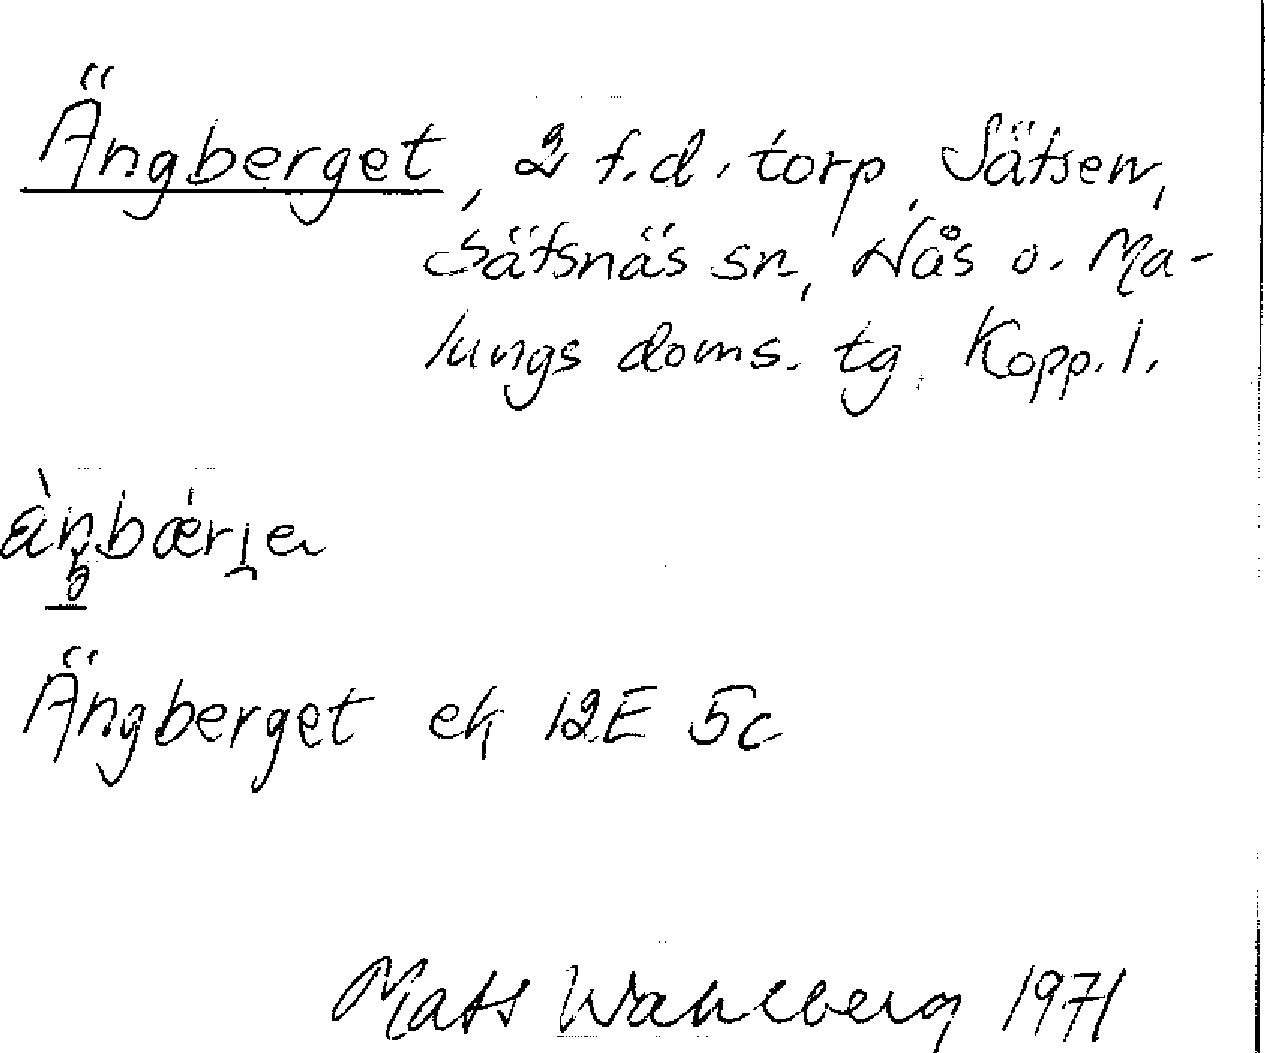 Ängberget, 2 f.d. torp, Sätsen,
Sätsnäs sn, Nås o. Ma-
lungs doms. tg. Kopp. l.
Ängberget ek 12E 5c
Mats Wahlberg 1971